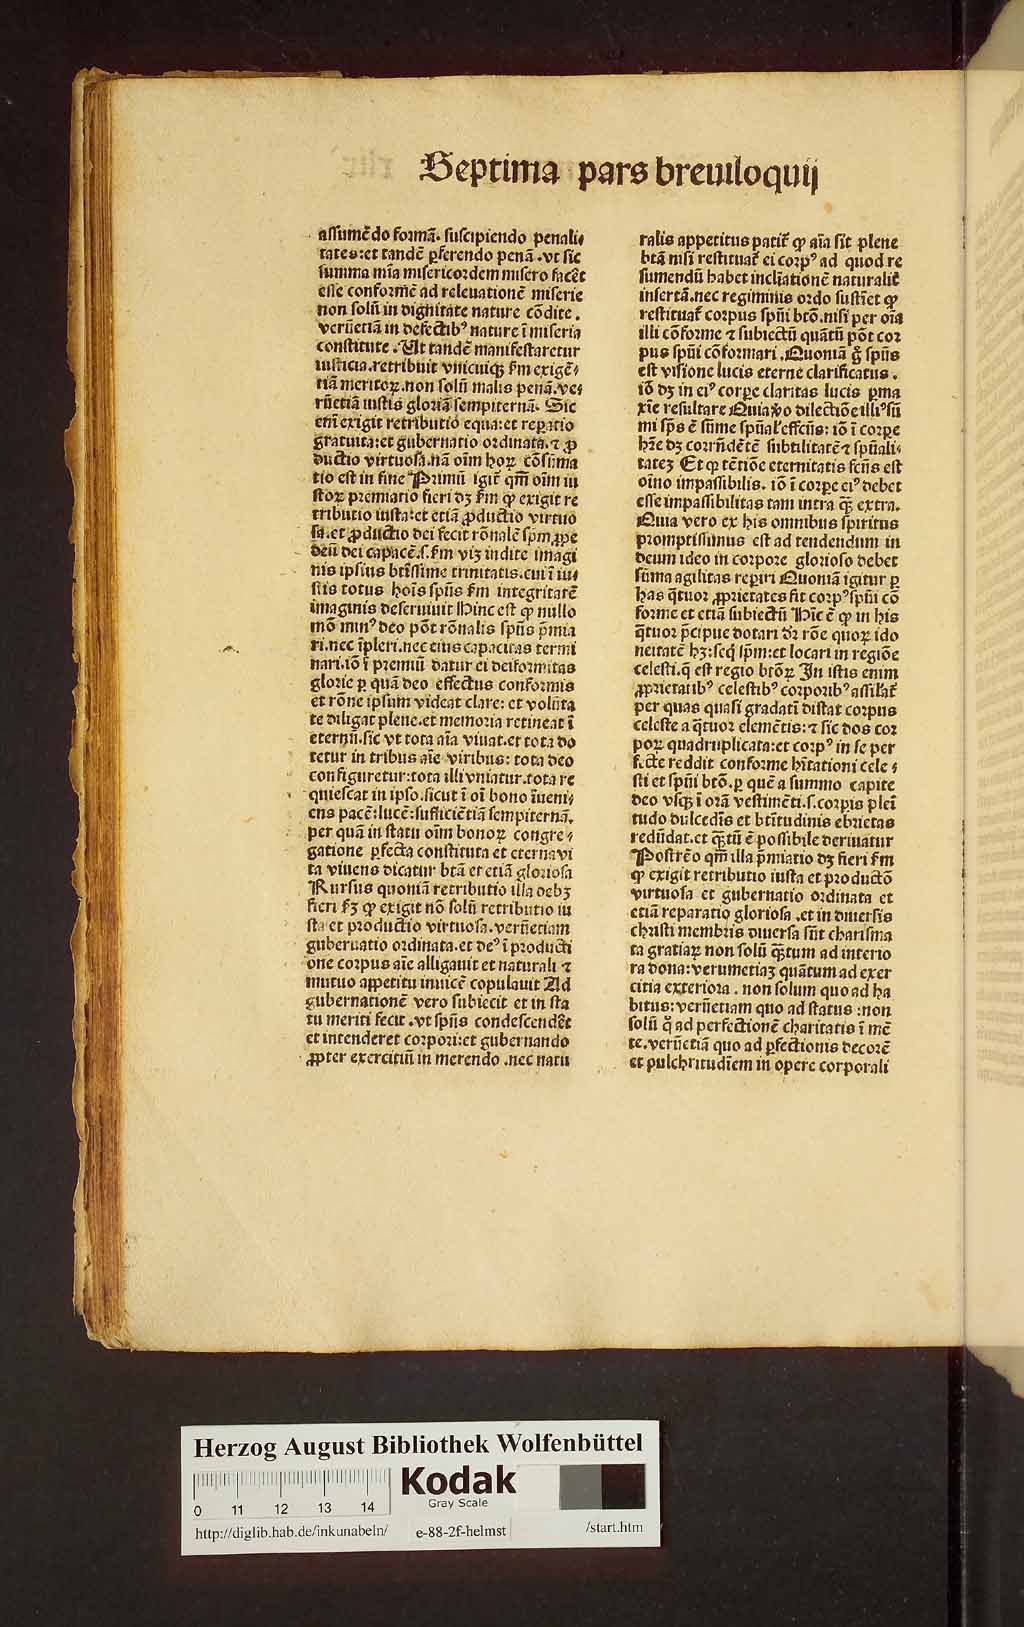 Septima pars breuiloquij
assumēdo formā. suscipiendo penali⸗
tates: et tandē ꝑferendo penā. vt sic
summa mīa misericordem misero facēt
esse conformē ad releuationē miserie
non solū in dignitate nature cōdite.
verūetiā in defectibꝰ nature ī miseria
constitute. Ut tandē manifestaretur
iusticia. retribuit vnicuiqꝫ ẜm exigē⸗
tiā meritoꝝ. non solū malis penā. ve⸗
rūetiā iustis gloriā sempiternā. Sic
enī exigit retributio equa: et reꝑatio
gratuita: et gubernatio ordinata. ⁊ ꝓ
ductio virtuosa. nā oīm hoꝝ cōsūma
tio est in fine Primū igit᷑ qm̄ oīm iu
stoꝝ premiatio fieri dꝫ ẜm ꝙ exigit re
tributio iusta: et etiā ꝓductio virtuo
sa. et ꝓductio dei fecit rōnalē sp̄m ꝓpe
deū dei capacē. s. ẜm vim indite imagi
nis ipsius btīssime trinitatis. cui ī iu⸗
stis totus hoīs spūs ẜm integritatē
imaginis deseruiuit Hinc est ꝙ nullo
mō minꝰ deo pōt rōnalis spūs p̄mia
ri. nec īpleri. nec eius capacitas termi
nari. iō ī premiū datur ei deiformitas
glorie ꝑ quā deo effectus conformis
et rōne ipsum videat clare: et volūta
te diligat plene. et memoria retineat ī
eternū. sic vt tota aīa viuat. et tota do
tetur in tribus aīe viribus: tota deo
configuretur: tota illi vniatur. tota re
quiescat in ipso. sicut ī oī bono īueni⸗
ens pacē: lucē: sufficiētiā sempiternā.
per quā in statu oīm bonoꝝ congre⸗
gatione ꝑfecta constituta et eterna vi
ta viuens dicatur btā et etiā gloriosa
Rursus quoniā retributio illa debꝫ
fieri ẜꝫ ꝙ exigit nō solū retributio iu
sta et productio virtuosa. verūetiam
gubernatio ordinata. et deꝰ ī producti
one corpus aīe alligauit et naturali ⁊
mutuo appetitu inuicē copulauit Ad
gubernationē vero subiecit et in sta
tu meriti fecit. vt spūs condescendēt
et intenderet corpori: et gubernando
ꝓpter exercitiū in merendo. nec natu
ralis appetitus patit᷑ ꝙ aīa sit plene
btā nisi restituat᷑ ei corpꝰ ad quod re
sumendū habet inclīationē naturalit᷑
insertā. nec regiminis ordo sustīet ꝙ
restituat᷑ corpus spūi btō. nisi per oīa
illi cōforme ⁊ subiectū quātū pōt cor
pus spūi cōformari. Quoniā gͦ spūs
est visione lucis eterne clarificatus.
iō dꝫ in eiꝰ corꝑe claritas lucis ꝑma
xīe resultare Quia ꝟo dilectiōe illiꝰ sū
mi sp̄s ē sūme spūal᷑ effectus: iō ī corꝑe
hr̄e dꝫ corrn̄dētē subtilitatē ⁊ spūali⸗
tatē Et qꝛ tētiōe eternitatis fctūs est
oīno impassibilis. iō ī corꝑe eiꝰ debet
esse impassibilitas tam intra qꝫ̄ extra.
Quia vero ex his omnibus spiritus
promptissimus est ad tendendum in
deum ideo in corpore glorioso debet
sūma agilitas reꝑiri Quoniā igitur ꝑ
has q̄tuor ꝓprietates fit corpꝰ spūi cō
forme et etiā subiectū Hīc ē ꝙ in his
q̄tuor p̄cipue dotari dr̄ rōe quoꝝ ido
neitatē hꝫ: seq̄ sp̄m: et locari in regiōe
celesti. q̄ est regio btōꝝ In istis enim
ꝓprietatibꝰ celestibꝰ corporibꝰ assilat᷑
per quas quasi gradatī distat corpus
celeste a q̄tuor elemētis: ⁊ sic dos cor
poꝝ quadruplicata: et corpꝰ in se per
fecte reddit conforme hītationi cele⸗
sti et spūi btō. ꝑ quē a summo capite
deo vsqꝫ ī orā vestimēti. s. corpis pleī
tudo dulcedīs et btītudinis ebrietas
redūdat. et qꝫ̄tū ē possibile deriuatur
Postrēo qm̄ illa p̄miatio dꝫ fieri ẜm
ꝙ exigit retributio iusta et productō
virtuosa et gubernatio ordinata et
etiā reparatio gloriosa. et in diuersis
christi membris diuersa sūt charisma
ta gratiaꝝ non solū qꝫ̄tum ad interio
ra dona: verumetiaꝫ quātum ad exer
citia exteriora. non solum quo ad ha
bitus: verūetiam quo ad status: non
solū qͦ ad perfectionē charitatis ī mē
te. verūetiā quo ad ꝑfectionis decorē
et pulchritudīem in opere corporali
Herzog August Bibliothek Wolfenbüttel
0 11 12 13 14
Kodak
Gray Scale
http://diglib.hab.de/inkunabeln/ e-88-2f-helmst /start.htm